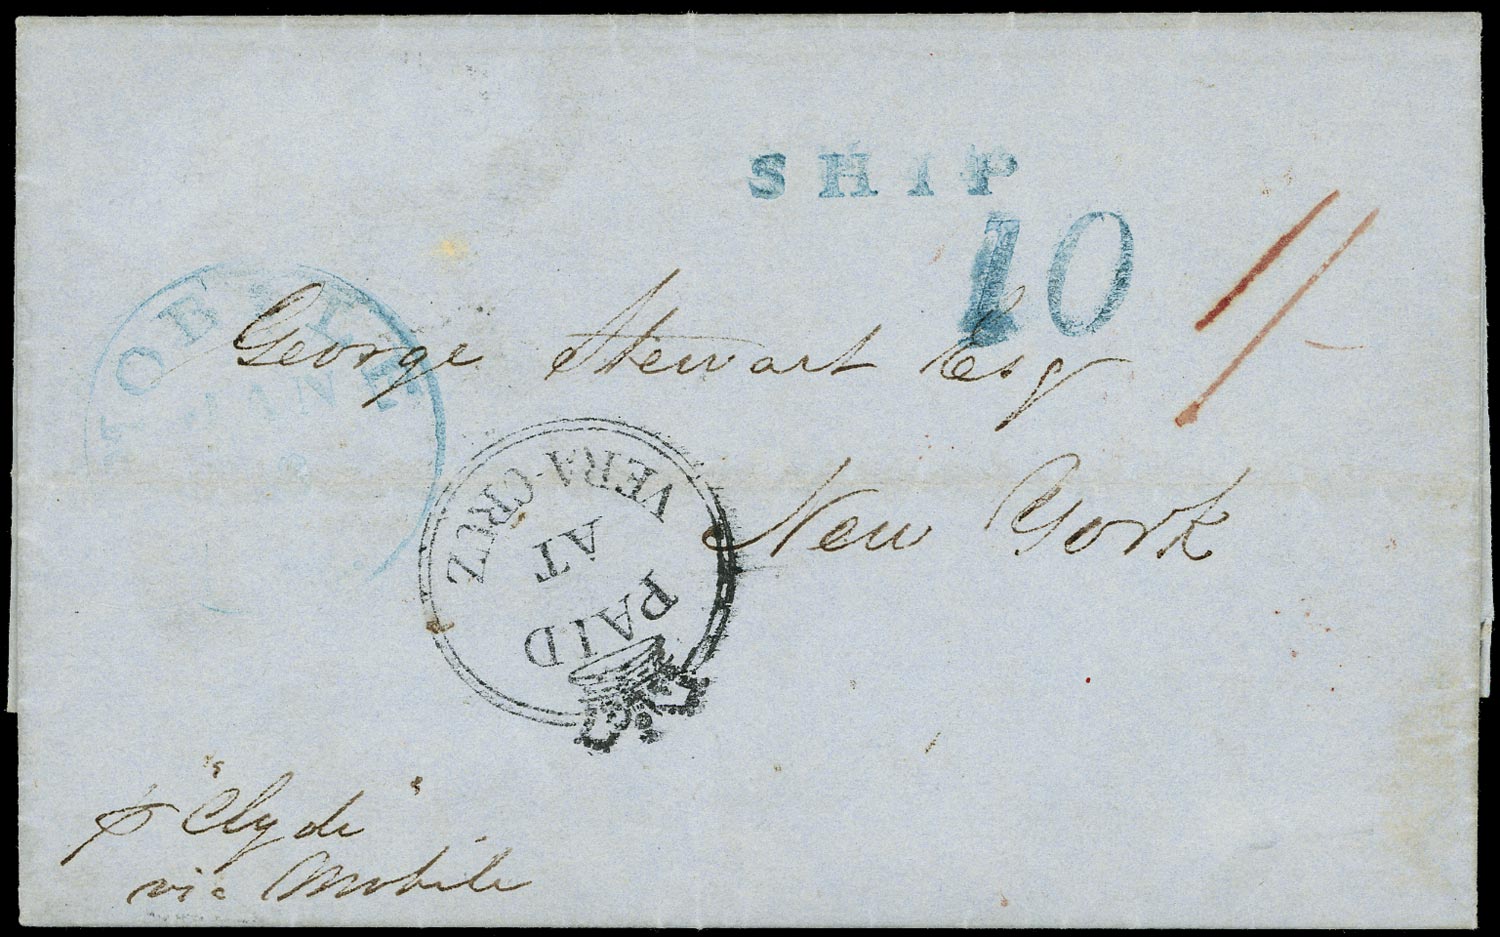 SHIP
10
1/-
MOBILE
JAN
George Stewart Esq
New York
PAID
AT
VERA-CRUZ
p "Clyde"
via Mobile